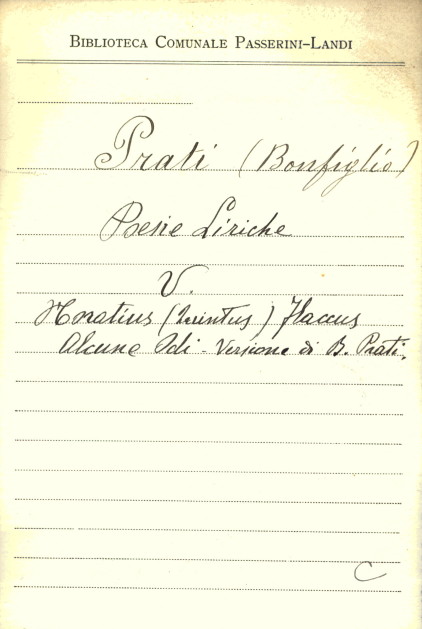 BIBLIOTECA COMUNALE PASSERINI-LANDI
Prati (Bonfiglio)
Poesie Liriche
V.
Horatius (Quintus) Flaccus
Alcune Odi - Versione di B. Prati.
C